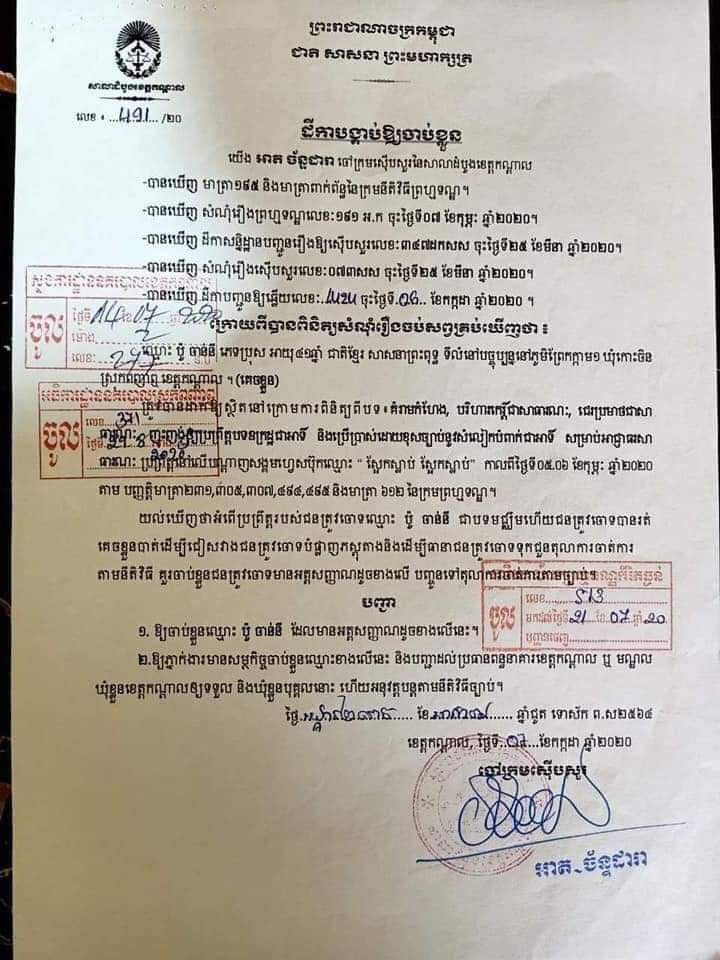 ព្រះរាជាណាចក្រកម្ពុជា
ជាតិ សាសនា ព្រះមហាក្សត្រ
សាលាដំបូងខេត្តកណ្តាល
លេខ ៖ ...491.../២០
ដីកាបង្គាប់ឱ្យចាប់ខ្លួន
យើង អាត ច័ន្ទដារា ចៅក្រមស៊ើបសួរនៃសាលាដំបូងខេត្តកណ្តាល
-បានឃើញ មាត្រា១៩៥ និងមាត្រាពាក់ព័ន្ធនៃក្រមនីតិវិធីព្រហ្មទណ្ឌ។
-បានឃើញ សំណុំរឿងព្រហ្មទណ្ឌលេខ:១៩១ អ.ក ចុះថ្ងៃទី០៧ ខែកុម្ភៈ ឆ្នាំ២០២០។
-បានឃើញ ដីកាសន្និដ្ឋានបញ្ជូនរឿងឱ្យស៊ើបសួរលេខ:៣៤៧ដកសស ចុះថ្ងៃទី២៥ ខែមីនា ឆ្នាំ២០២០។
-បានឃើញ សំណុំរឿងស៊ើបសួរលេខ:០៧៣សស ចុះថ្ងៃទី២៥ ខែមីនា ឆ្នាំ២០២០។
-បានឃើញ ដីកាបញ្ជូនឱ្យឆ្លើយលេខ: ចុះថ្ងៃទី.06.. ខែកក្កដា ឆ្នាំ២០២០ ។
ស្នងការដ្ឋាននគរបាលខេត្តកណ្តាល
ចូល
ថ្ងៃទី 14 ខែ 07 ឆ្នាំ
ម៉ោង 2
លេខ:
ក្រោយពីបានពិនិត្យសំណុំរឿងចប់សព្វគ្រប់ឃើញថា ៖
ឈ្មោះ ប៉ូ ចាន់នី ភេទប្រុស អាយុ៤១ឆ្នាំ ជាតិខ្មែរ សាសនាព្រះពុទ្ធ ទីលំនៅបច្ចុប្បន្ននៅភូមិព្រែកក្តាម១ ឃុំកោះចិន
ស្រុកពញាឮ ខេត្តកណ្តាល ។ (គេចខ្លួន)
អធិការដ្ឋាននគរបាលស្រុកពញាឮ
ចូល
លេខ 371
ថ្ងៃទី
ត្រូវបានដាក់ឱ្យស្ថិតនៅក្រោមការពិនិត្យពីបទ ៖ គំរាមកំហែង, បរិហារកេរ្តិ៍ជាសាធារណៈ, ជេរប្រមាថជាសា
ធារណៈ ញុះញង់ឱ្យប្រព្រឹត្តបទឧក្រិដ្ឋជាអាទិ៍ និងប្រើប្រាស់ដោយខុសច្បាប់នូវសំលៀកបំពាក់ជាអាទិ៍ សម្រាប់អាជ្ញាធរសា
ធារណៈ ប្រព្រឹត្តនៅលើបណ្តាញសង្គមហ្វេសប៊ុកឈ្មោះ " ស្លែកស្លាប់ ស្លែកស្លាប់" កាលពីថ្ងៃ០៥.០៦ ខែកុម្ភៈ ឆ្នាំ២០២០
តាម បញ្ញត្តិមាត្រា២៣១,៣០៥,៣០៧,៤៩៤,៤៩៥ និងមាត្រា ៦១២ នៃក្រមព្រហ្មទណ្ឌ។
យល់ឃើញថាអំពើប្រព្រឹត្តរបស់ជនត្រូវចោទឈ្មោះ ប៉ូ ចាន់នី ជាបទមជ្ឈិមហើយជនត្រូវចោទបានរត់
គេចខ្លួនបាត់ដើម្បីជៀសវាងជនត្រូវចោទបំផ្លាញភស្តុតាងនិងដើម្បីធានាជនត្រូវចោទទុកជូនតុលាការចាត់ការ
តាមនីតិវិធី គួរចាប់ខ្លួនជនត្រូវចោទមានអត្តសញ្ញាណដូចខាងលើ បញ្ជូនទៅតុលាការចាត់ការតាមច្បាប់។
បញ្ជា
ចូល
លេខ...... 513
មកដល់ថ្ងៃទី 21 ខែ 07 ឆ្នាំ 20
បញ្ជូនចេញ
១. ឱ្យចាប់ខ្លួនឈ្មោះ ប៉ូ ចាន់នី ដែលមានអត្តសញ្ញាណដូចខាងលើនេះ។
២.ឱ្យភ្នាក់ងារមានសមត្ថកិច្ចចាប់ខ្លួនឈ្មោះខាងលើនេះ និងបញ្ជាដល់ប្រធានពន្ធនាគារខេត្តកណ្តាល ឬ មណ្ឌល
ឃុំខ្លួនខេត្តកណ្តាលឲ្យទទួល និងឃុំខ្លួនបុគ្គលនោះ ហើយអនុវត្តបន្តតាមនីតិវិធីច្បាប់។
ថ្ងៃ ខែ ឆ្នាំជូត ទោស័ក ព.ស២៥៦៤
ខេត្តកណ្តាល, ថ្ងៃទី ខែកក្កដា ឆ្នាំ២០២០
ចៅក្រមស៊ើបសួរ
អាត ច័ន្ទដារា